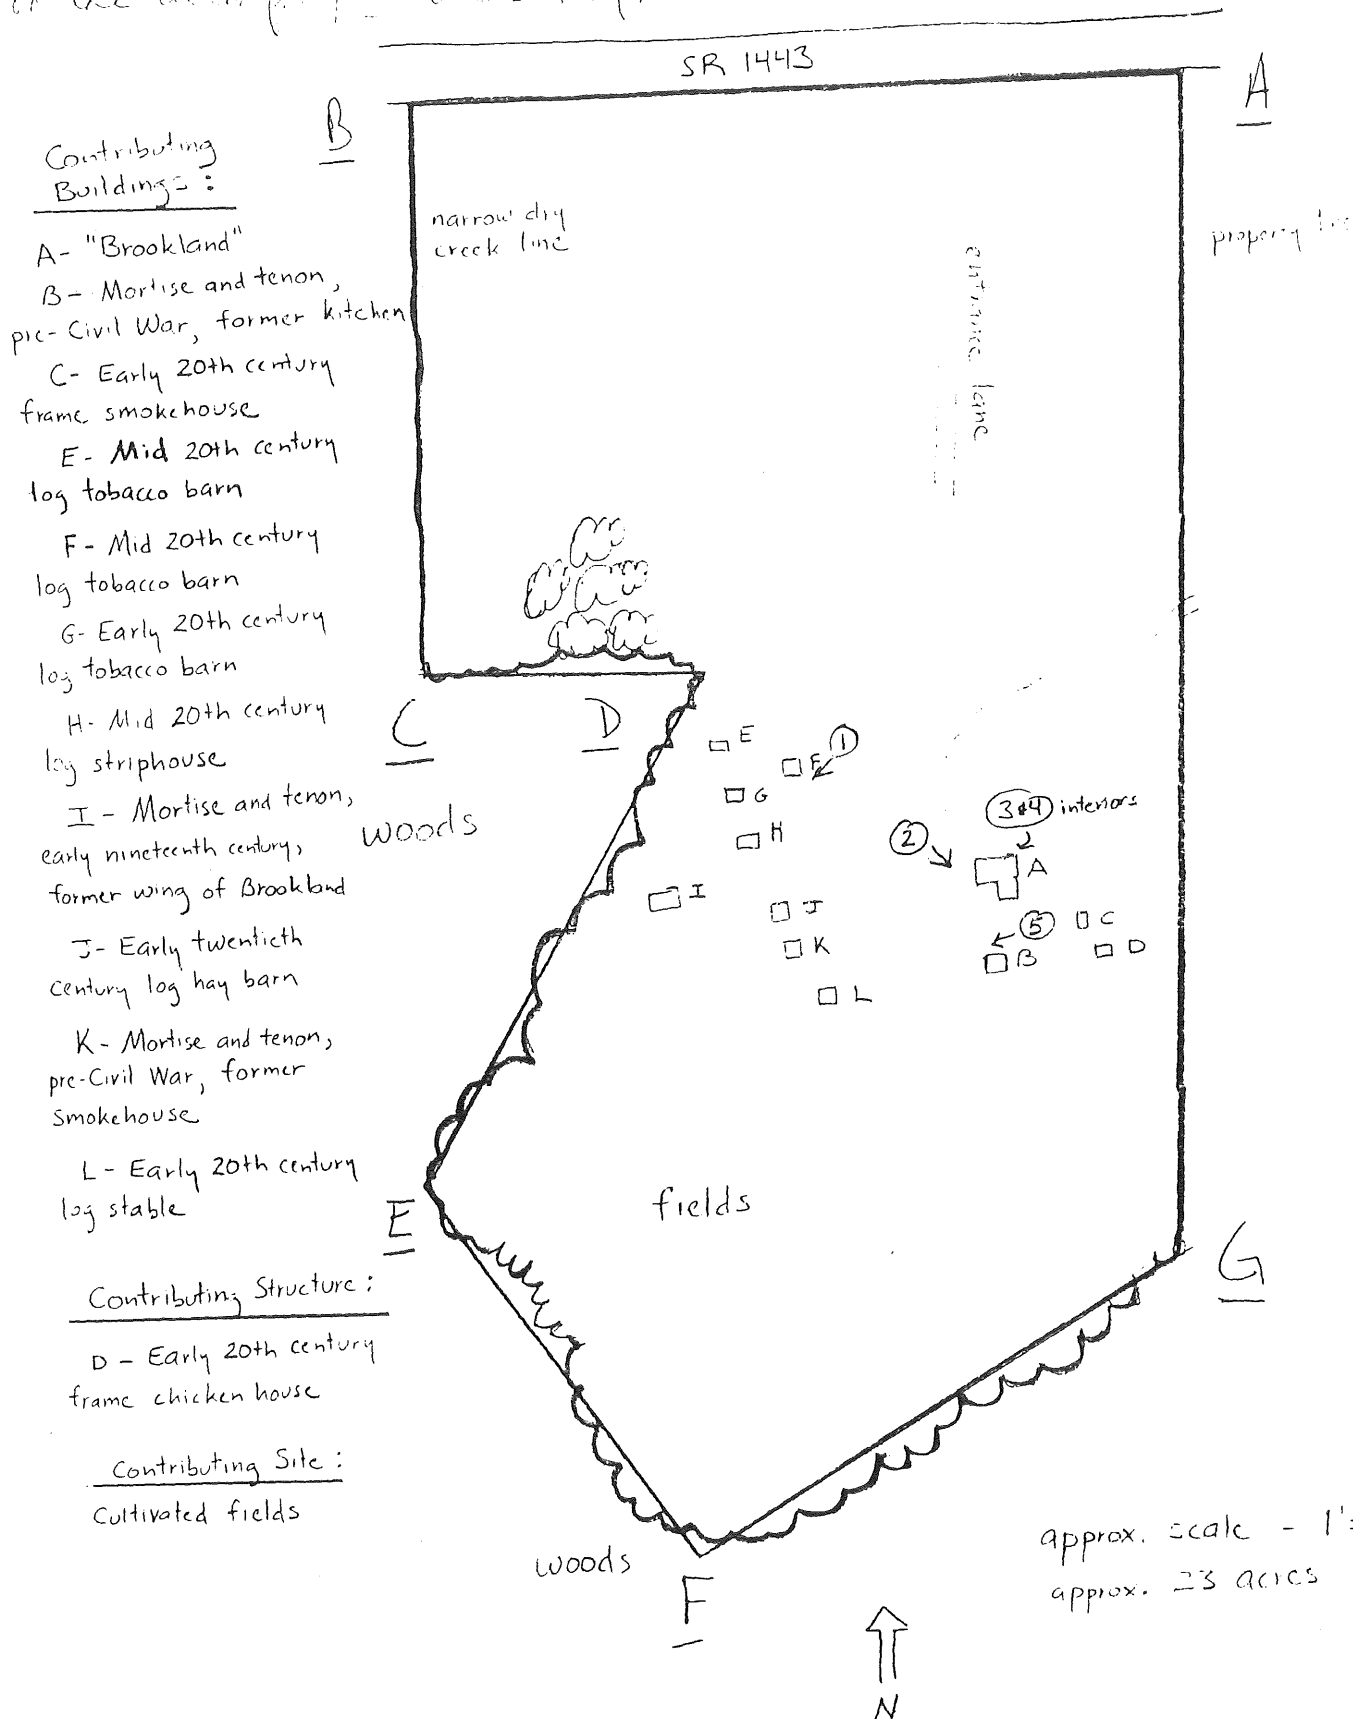 SR 1443
A
B
Contributing
Buildings:
A- "Brookland"
B- Mortise and tenon,
pre-Civil War, former kitchen
C- Early 20th century
frame smokehouse
E- Mid 20th century
log tobacco barn
F- Mid 20th century
log tobacco barn
G- Early 20th century
log tobacco barn
H- Mid 20th century
log striphouse
I- Mortise and tenon,
early nineteenth century,
former wing of Brookland
J- Early twentieth
century log hay barn
K- Mortise and tenon,
pre-Civil War, former
smokehouse
L- Early 20th century
log stable
Contributing Structure:
D- Early 20th century
frame chicken house
Contributing Site:
Cultivated fields
narrow dry
creek line
entrance lane
property
C
D
woods
E
F
1
G
H
I
J
K
L
3&4 interiors
2
A
5
C
B
D
E
fields
G
woods
F
N
approx. scale - 1"
approx. acres